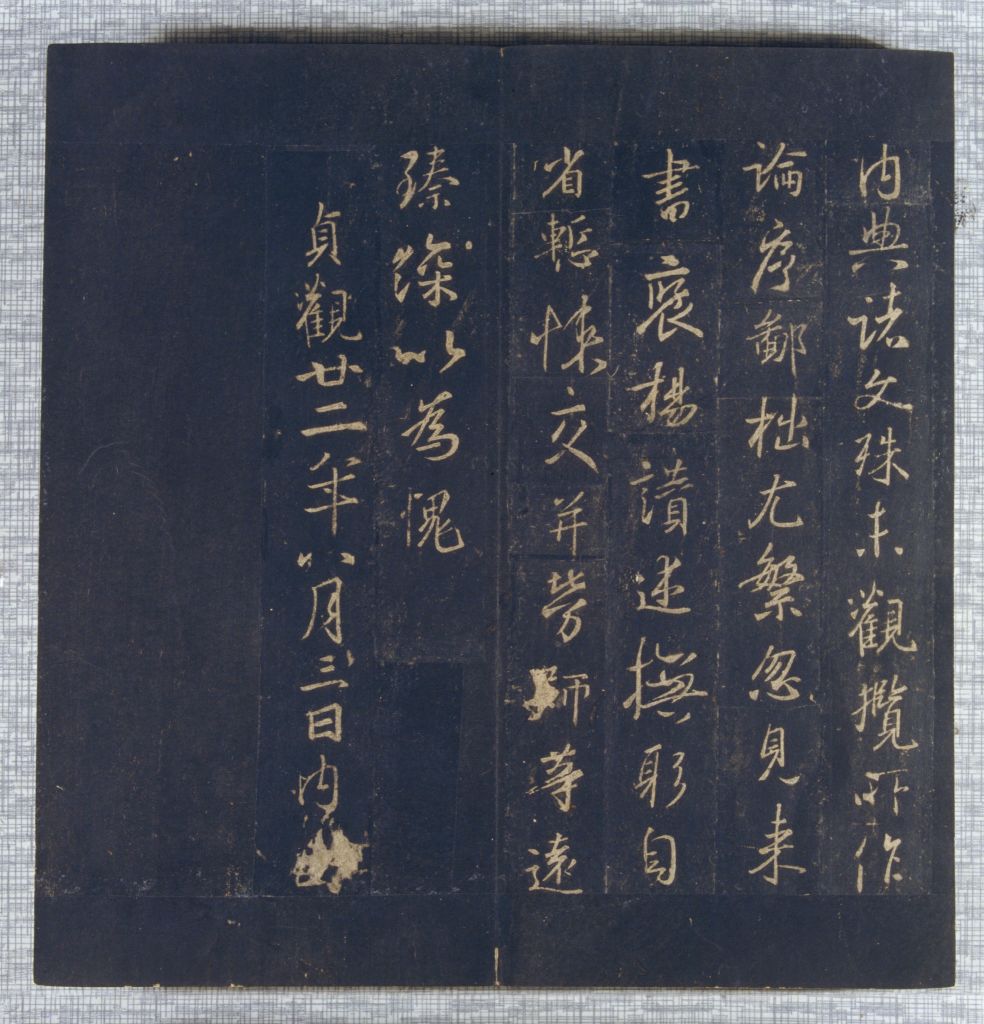 内典諸文殊未觀攬所作
論序鄙拙尤繁忽見来
書褒揚讃述撫躬自
省慙悚交并勞師等遠
臻深以為愧
貞觀廿二年八月三日内